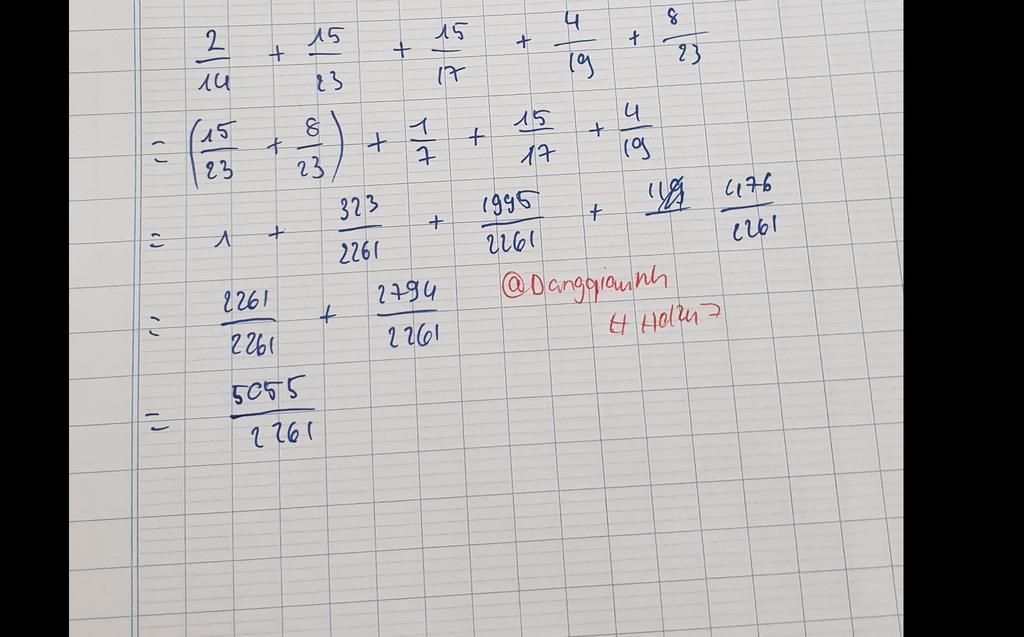 2/14 + 15/23 + 15/17 + 4/19 + 8/23
= (15/23 + 8/23) + 1/7 + 15/17 + 4/19
= 1 + 323/2261 + 1995/2261 + 476/2261
= 2261/2261 + 2794/2261
@Danggiaminh
= 5055/2261